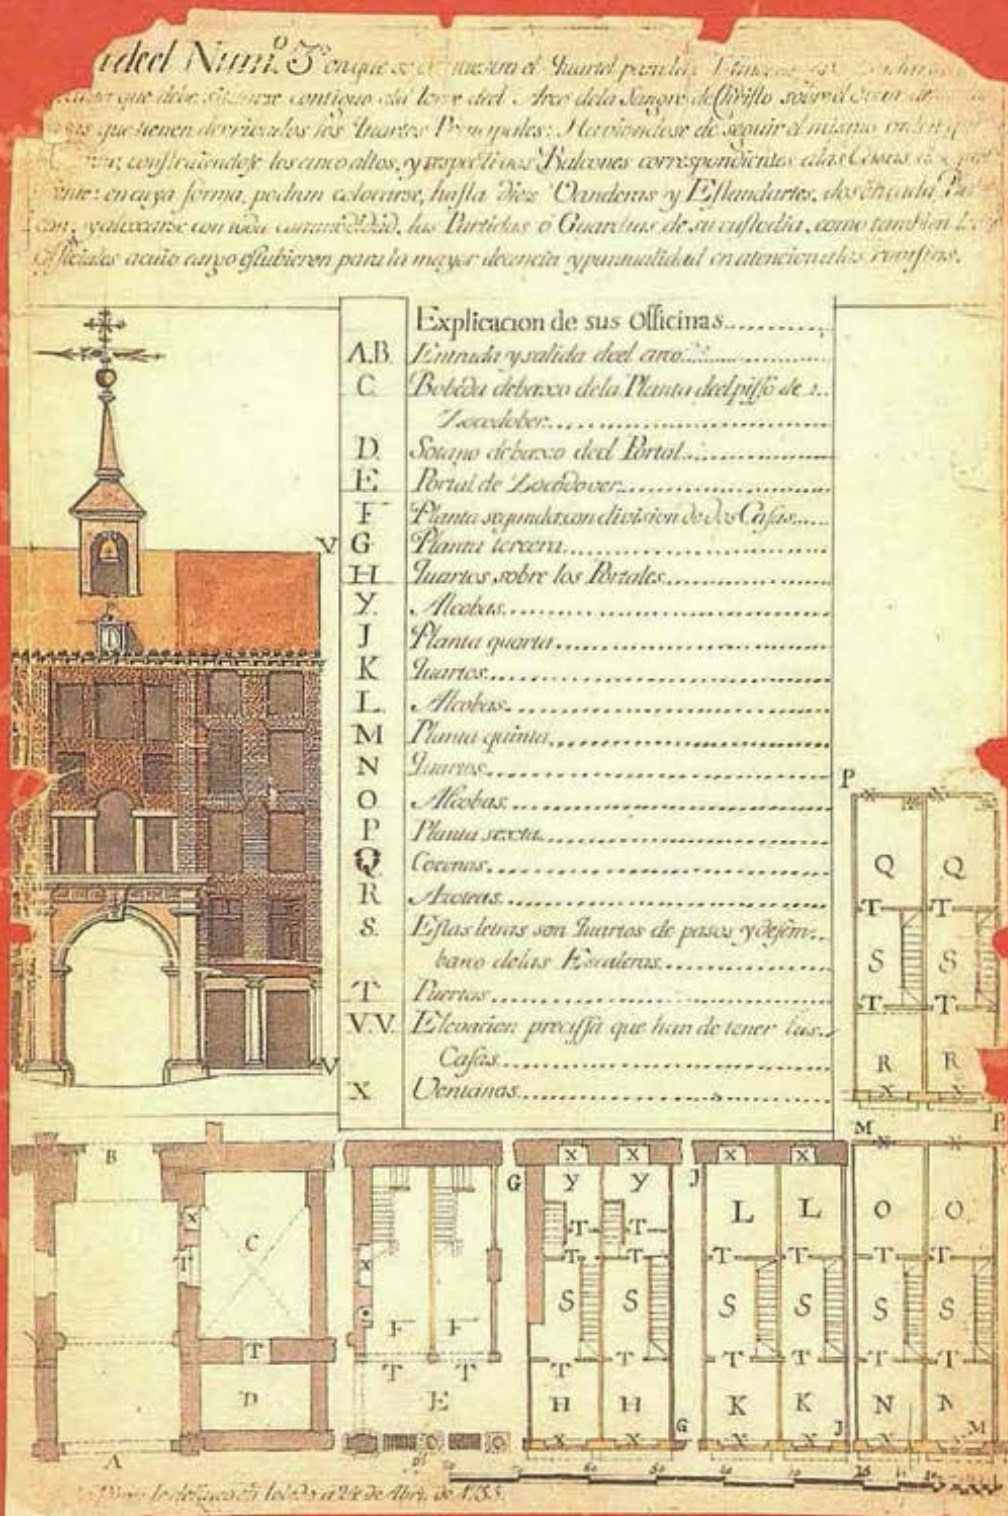 deel Num.º 3º en que se demuestra el Quartel para las
que debe situarse contiguo a la Torre deel Arco dela Sangre de Christo sobre el
que tienen derrivados los Quartos Principales: Haviendose de seguir el mismo orden q
construiendose los cinco altos, y respectivos Balcones correspondientes a las Casas
en cuya forma, podran colocarse, hasta diez Vanderas y Estandartes, dos en cada
y alocarse con toda commodidad, las Partidas ò Guardias de su custodia, como tambien
Officiales acuio cargo estubieren para la mayor decencia y puntualidad en atencion a las revistas.
Explicacion de sus Officinas
A.B. Entrada y salida deel arco
C. Bobeda debaxo de la Planta deel pisso de
Zocodober
D. Sotano debaxo deel Portal
E. Portal de Zocodover
F Planta segunda con division de dos Casas
V G Planta tercera
H Quartos sobre los Portales
Y. Alcobas
J Planta quarta
K Quartos
L. Alcobas
M Planta quinta
N Quartos
O Alcobas
P Planta sexta
Q Cocinas
R Azoteas
S. Estas letras son Quartos de pasos y desem-
barco delas Escaleras
T Puertas
V.V. Elevacion precissa que han de tener las
Casas
V
X Ventanas
P
X X
Q Q
T T
S S
T T
R R
X X
B G X X J X X M X X P
Y Y L L O O
X C T T
T X T T T T T T
S S S S S S
F F
T T T T T T T T T
D E H H K K N N
A X X G X X J X X M
70 60 50 40 30 20 10
en Toledo a 24 de Abri. de